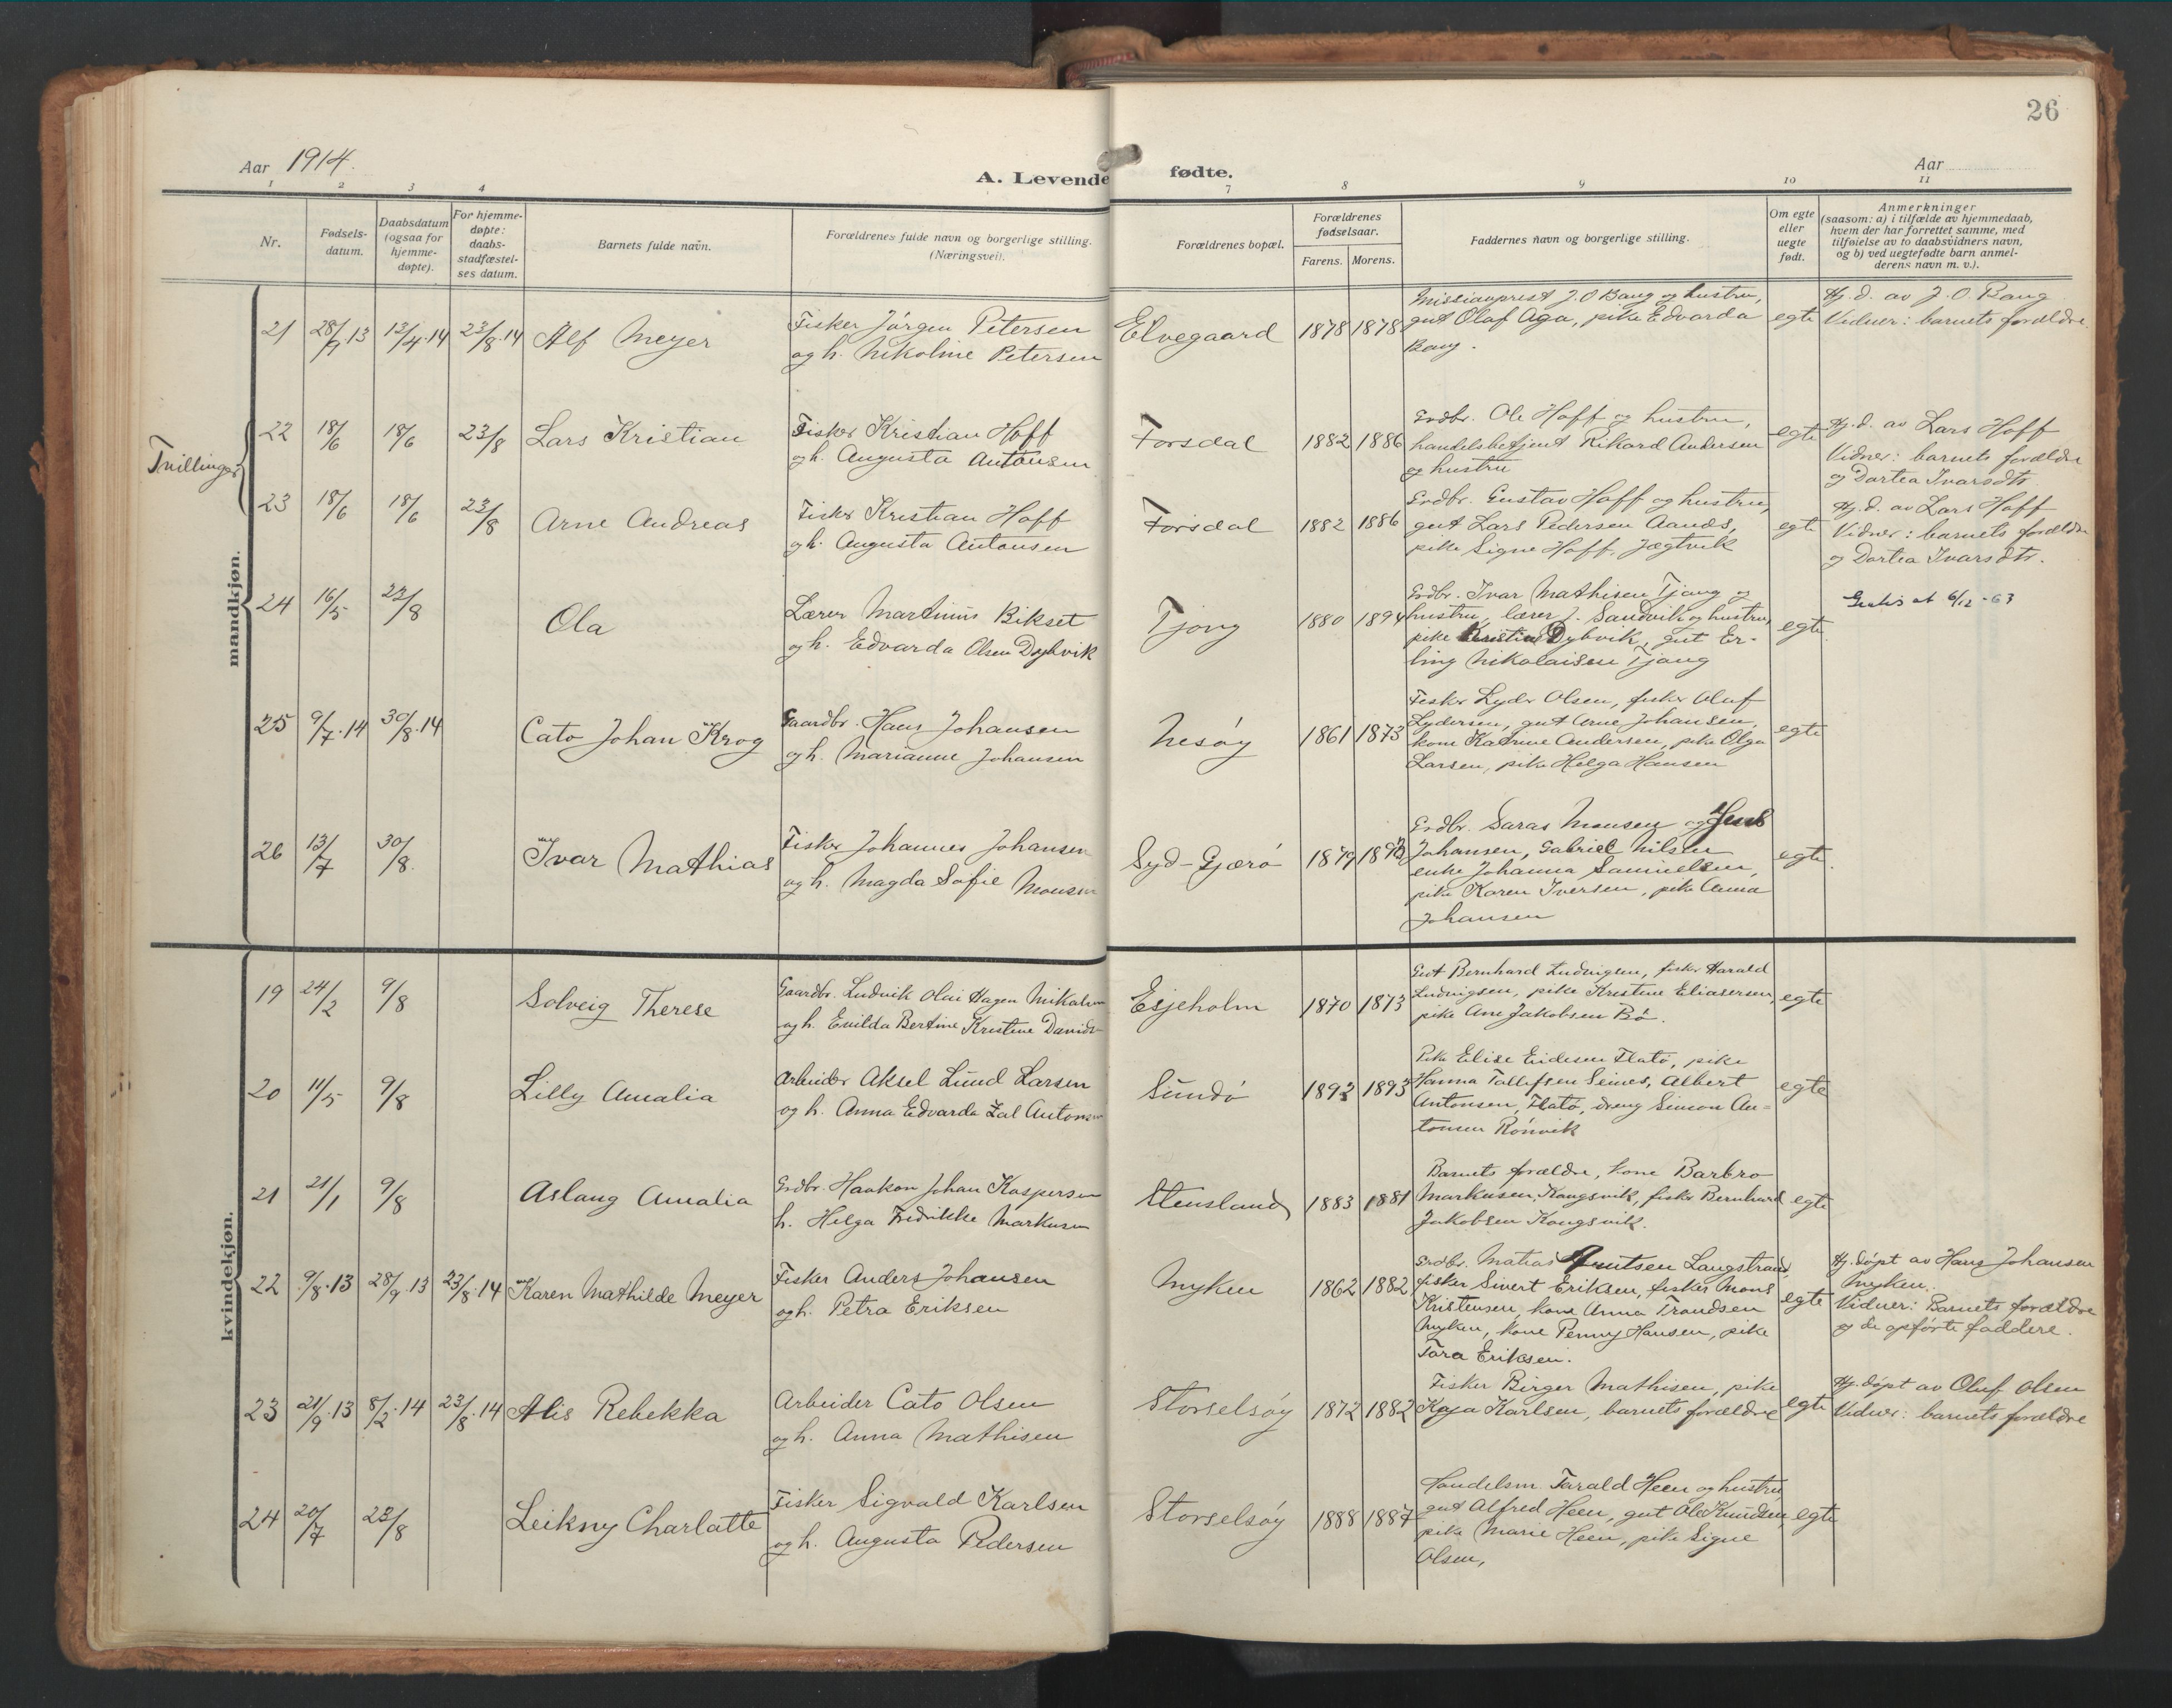 26
Aar 1914.
A. Levende fødte.
Aar
1 2 3 4 7 8 9 10 11
Nr.
Fødsels-
datum.
Daabsdatum
(ogsaa for
hjemme-
døpte).
For hjemme-
døpte:
daabs-
stadfæstel-
ses datum.
Barnets fulde navn.
Forældrenes fulde navn og borgerlige stilling.
(Næringsvei).
Forældrenes bopæl.
Forældrenes
fødselsaar.
Farens. Morens.
Faddernes navn og borgerlige stilling.
Om egte
eller
uegte
født.
Anmerkninger
(saasom: a) i tilfælde av hjemmedaab,
hvem der har forrettet samme, med
tilføielse av to daabsvidners navn,
og b) ved uegtefødte barn anmel-
derens navn m. v.).
mandkjøn.
21 28/9 13 13/4 14 23/8 14 Alf Meyer
Fisker Jørgen Petersen
og h. Nikoline Petersen
Elvegaard 1878 1878
Missionsprest J. O Bang og hustru,
gut Olaf Aga, pike Edvarda
Bang.
egte
Hj. d. av J. O. Bang
Vidner: barnets forældre.
Tvillinger
22 18/6 18/6 23/8 Lars Kristian
Fisker Kristian Hoff
og h. Augusta Antonsen
Forsdal 1882 1886
Grdbr. Ole Hoff og hustru,
handelsbetjent Rikard Andersen
og hustru
egte
Hj. d. av Lars Hoff
Vidner: barnets forældre
og Dortea Ivarsdtr.
23 18/6 18/6 23/8 Arne Andreas
Fisker Kristian Hoff
og h. Augusta Antonsen
Forsdal 1882 1886
Grdbr. Gustav Hoff og hustru,
gut Lars Pedersen Aanes,
pike Signe Hoff, Jægtvik
egte
Hj. d. av Lars Hoff
Vidner: barnets forældre
og Dortea Ivarsdtr.
24 16/5 23/8 Ola
Lærer Martinus Bikset
og h. Edvarda Olsen Dybvik
Tjong 1880 1894
Grdbr. Ivar Mathisen Tjong og
hustru, lærer J. Sandvik og hustru,
pike Kristine Dybvik, gut Er-
ling Nikolaisen Tjong
egte
6/12 - 63
25 9/7 14 30/8 14 Cato Johan Krog
Gaardbr. Hans Johansen
og h. Marianne Johansen
Nesøy 1861 1873
Fisker Lyder Olsen, fisker Oluf
Lydersen, gut Arne Johansen,
kone Katrine Andersen, pike Olga
Larsen, pike Helga Hansen
egte
26 13/7 30/8 Ivar Mathias
Fisker Johannes Johansen
og h. Magda Sofie Monsen
Syd-Gjærø 1879
Grdbr. Saras Monsen og Jens
Johansen, Gabriel Nilsen
enke Johanna Samuelsen,
pike Karen Iversen, pike Anna
Johansen
egte
kvindekjøn.
19 24/2 9/8 Solveig Therese
Gaardbr. Ludvik Olai Hagen Mikalsen
og h. Enilda Bertine Kristine Davids-
Esjeholm 1870 1873
Gut Bernhard Ludvigsen, fisker Harald
Ludvigsen, pike Kristine Eliasersen,
pike Ane Jakobsen Bø.
egte
20 11/5 9/8 Lilly Amalia
Arbeider Aksel Lund Larsen
og h. Anna Edvarda Zal Antonsen
Sundø 1892 1893
Pike Elise Endresen Flatø, pike
Hanna Tollefsen Seines, Albert
Antonsen, Flatø, dreng Simon An-
tonsen Rönvik
egte
21 21/1 9/8 Aslaug Amalia
Grdbr. Haakon Johan Kaspersen
h. Helga Fredrikke Markusen
Stensland 1883 1881
Barnets forældre, kone Barbro
Markusen, Kongsvik, fisker Bernhard
Jakobsen Kongsvik.
egte
22 9/8 13 28/9 13 23/8 14 Karen Mathilde Meyer
Fisker Anders Johansen
og h. Petra Eriksen
Myken 1862 1882
Grdbr. Matias Knutsen Langstrand,
fisker Sivert Eriksen, fisker Mons
Kristensen, kone Anna Trondsen
Myken, kone Penny Hansen, pike
Tora Eriksen.
egte
Hj. døpt av Hans Johansen
Myken.
Vidner: Barnets forældre
og de opførte faddere.
23 21/9 13 8/2 14 23/8 14 Alis Rebekka
Arbeider Cato Olsen
og h. Anna Mathisen
Storselsøy 1872 1882
Fisker Birger Mathisen, pike
Kaja Karlsen, barnets forældre
egte
Hj. døpt av Oluf Olsen
Vidner: barnets forældre
24 20/7 23/8 Leikny Charlotte
Fisker Sigvald Karlsen
og h. Augusta Pedersen
Storselsøy 1888 1887
Handelsm. Tarald Heen og hustru
gut Alfred Heen, gut Ole Knudsen,
pike Marie Heen, pike Signe
Olsen,
egte